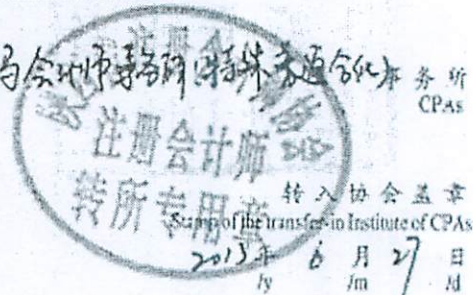 会计师事务所(特殊普通合伙)事务所
CPAs
注册会计师
转所专用章
转入协会盖章
Stamp of the transfer-in Institute of CPAs
2013年 6月 27日
/y /m /d